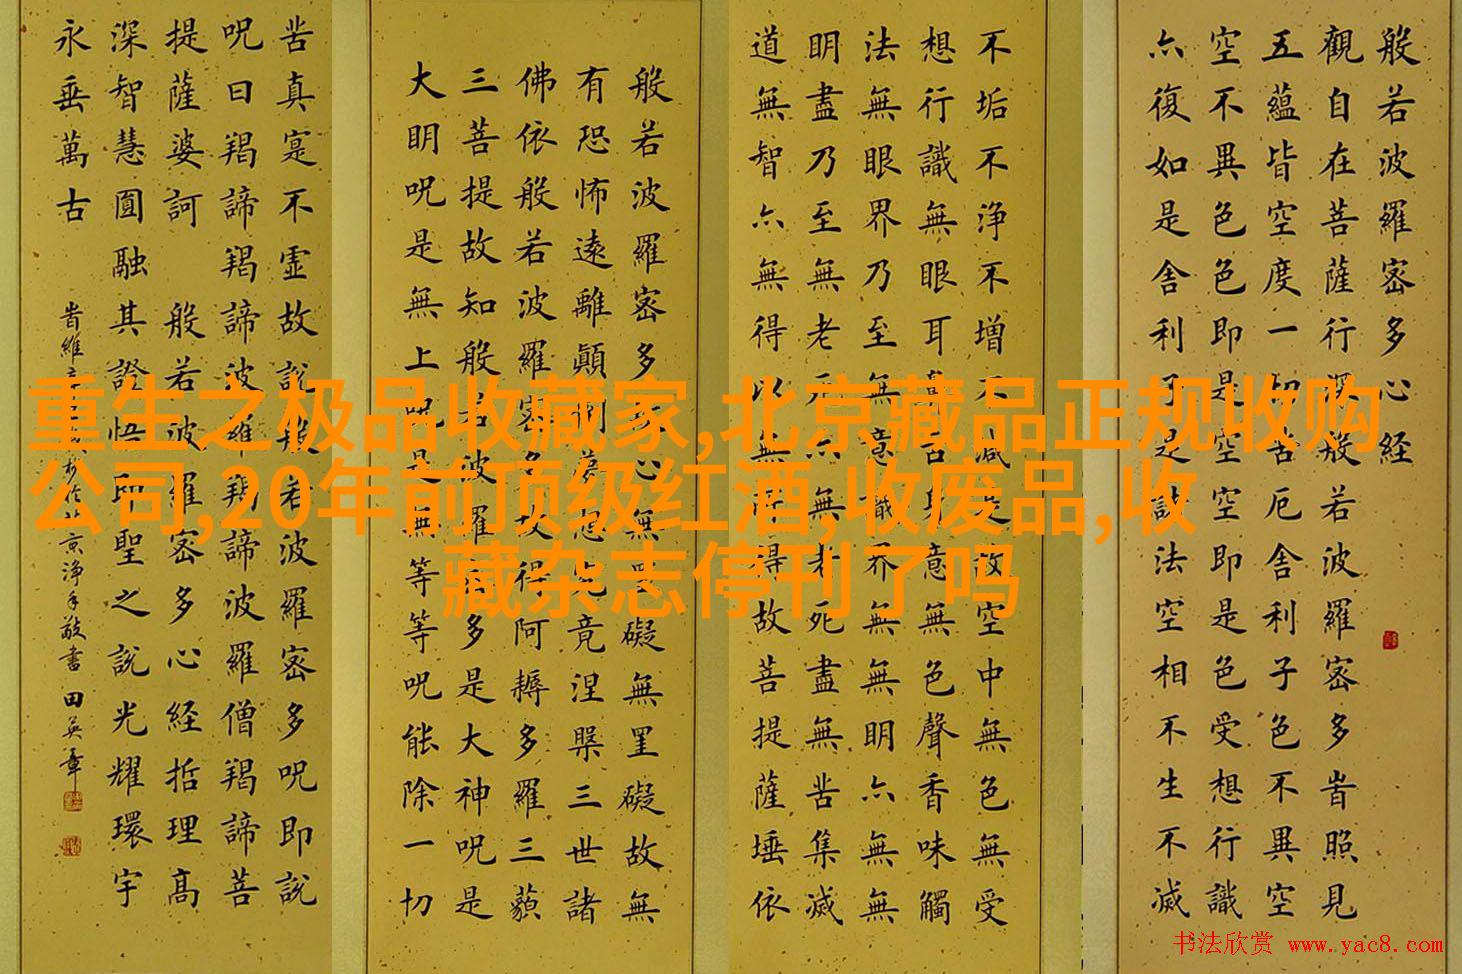 般若波羅密多心経
觀自在菩薩行深般若波羅密多峕照見
五蘊皆空度一切苦厄舍利子色不異空
空不異色色即是空空即是色受想行識
亦復如是舍利子是諸法空相不生不滅
不垢不浄不增不减是故空中無色無受
想行識無眼耳鼻舌身意無色聲香味觸
法無眼界乃至無意識界無無明亦無無
明盡乃至無老死亦無老死盡無苦集滅
道無智亦無得以無所得故菩提薩埵依
般若波羅密多故心無罣礙無罣礙故無
有恐怖遠離顛倒夢想究竟涅槃三世諸
佛依般若波羅密多故得阿耨多羅三藐
三菩提故知般若波羅密多是大神呪是
大明呪是無上呪是無等等呪能除一切
苦真寔不虛故説般若波羅密多呪即説
呪曰羯諦羯諦波羅羯諦波羅僧羯諦菩
提薩婆訶 般若波羅密多心経括理高
深智慧圓融其證悟即聖之説光耀環宇
永垂萬古
峕維 京浄手敬書田英章
重生之极品收藏家,北京藏品正规收购
公司,20年前顶级红酒,收废品,收
藏杂志停刊了吗
书法欣赏 www.yac8.com